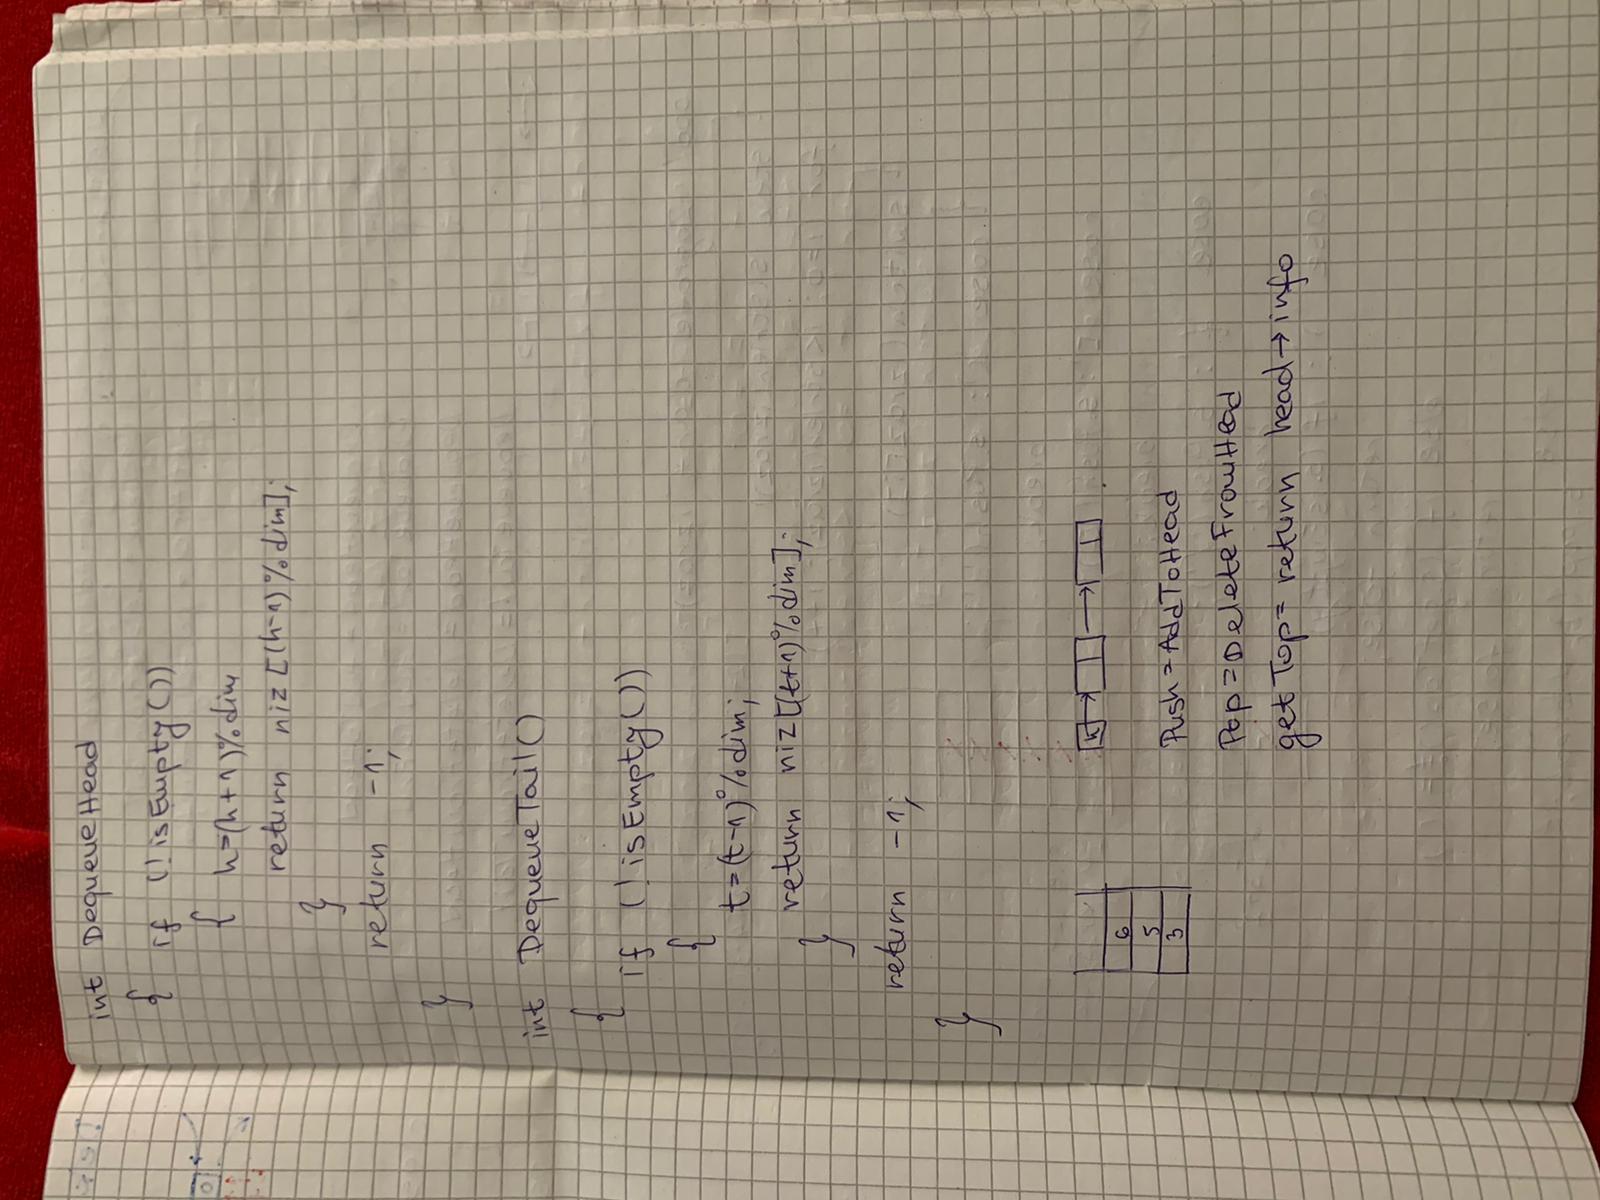 int DequeueHead
{ if (!isEmpty())
{ h=(h+1)%dim
return niz[(h-1)%dim];
}
return -1;
}
int DequeueTail()
{ if (!isEmpty())
{
t=(t-1)%dim;
return niz[(t+1)%dim];
}
return -1;
}
6
5
3
h
Push=AddToHead
Pop=DeleteFromHead
getTop= return head→info